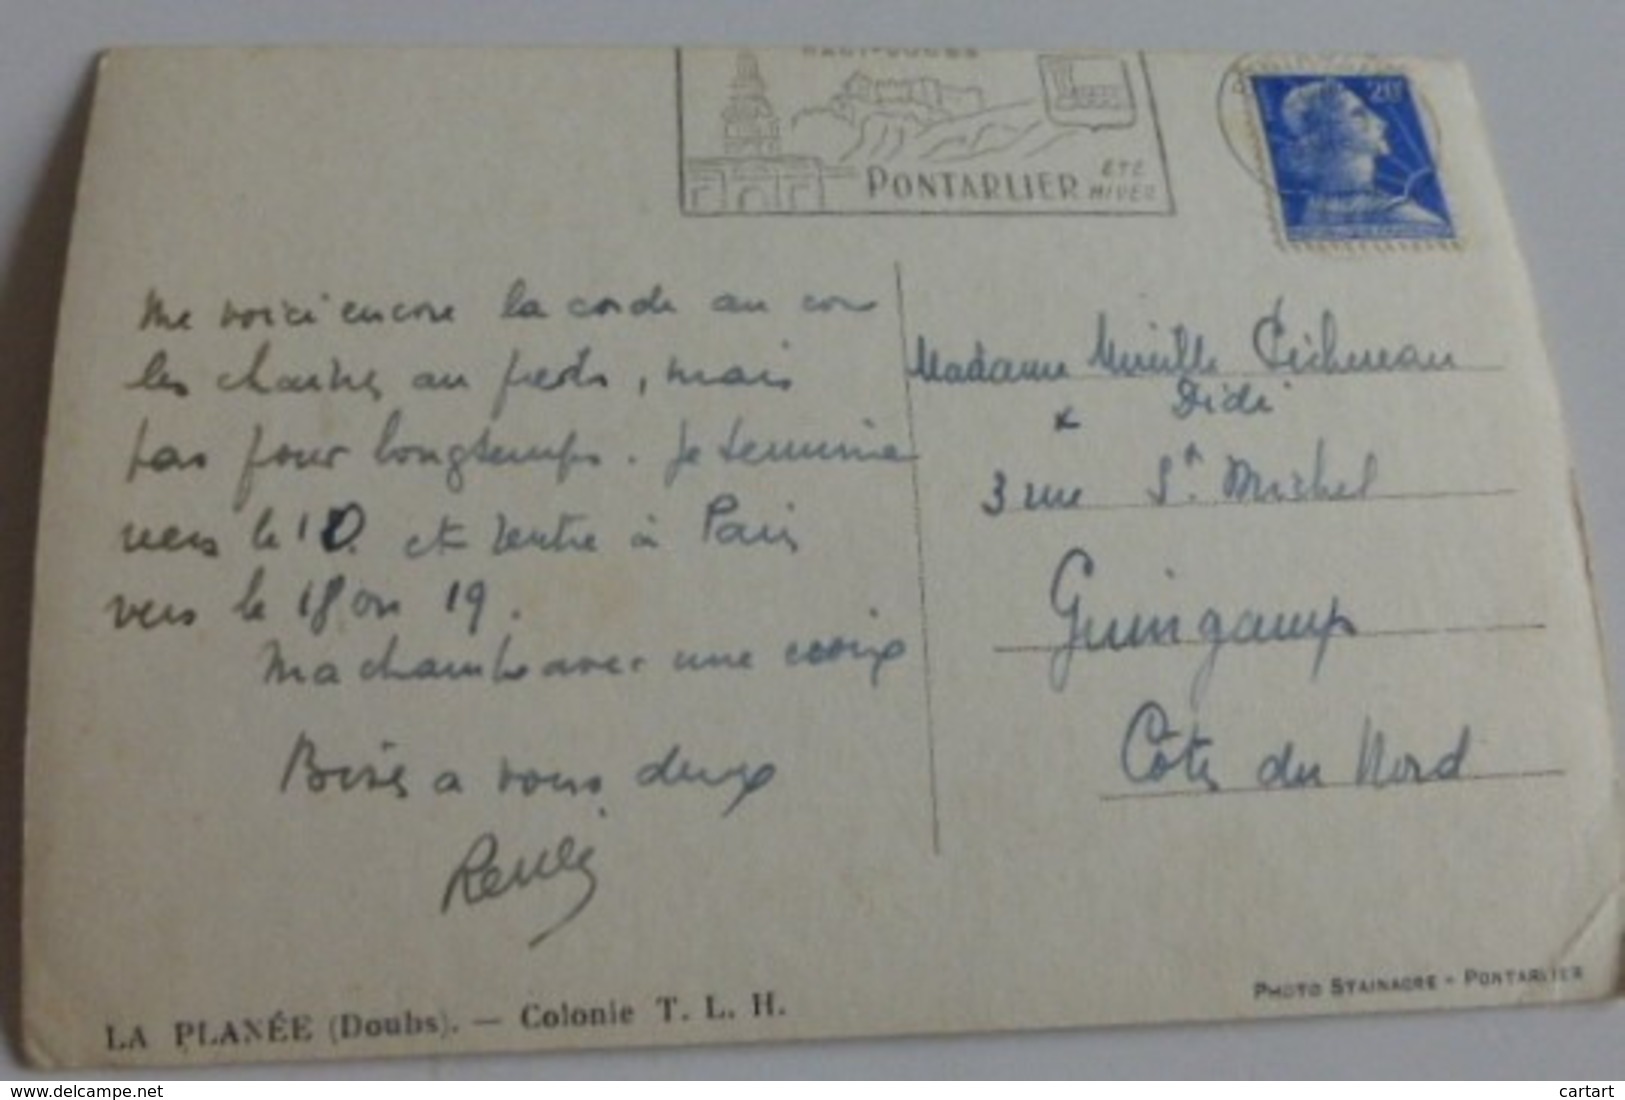 HAUT-DOUBS
PONTARLIER
ÉTÉ
HIVER
20F
Me voici encore la corde au cou
les chaines au pieds, mais
pas pour longtemps. Je termine
vers le 10. et rentre à Paris
vers le 18 ou 19.
Ma chambre avec une croix
Bises a vous deux
Madame Mireille
x Didi
3 rue St. Michel
Guingamp
Côtes du Nord
LA PLANÉE (Doubs). — Colonie T. L. H.
PHOTO STAINACRE - PONTARLIER
delcampe.net
cartart